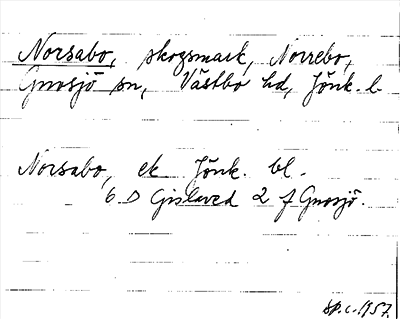 Norsabo, skogsmark, Norrebo,
Gnosjö sn, Västbo hd, Jönk. l.
Norsabo, ek Jönk. bl.
6 D Gislaved 2 f Gnosjö.
SP.c. 1957.